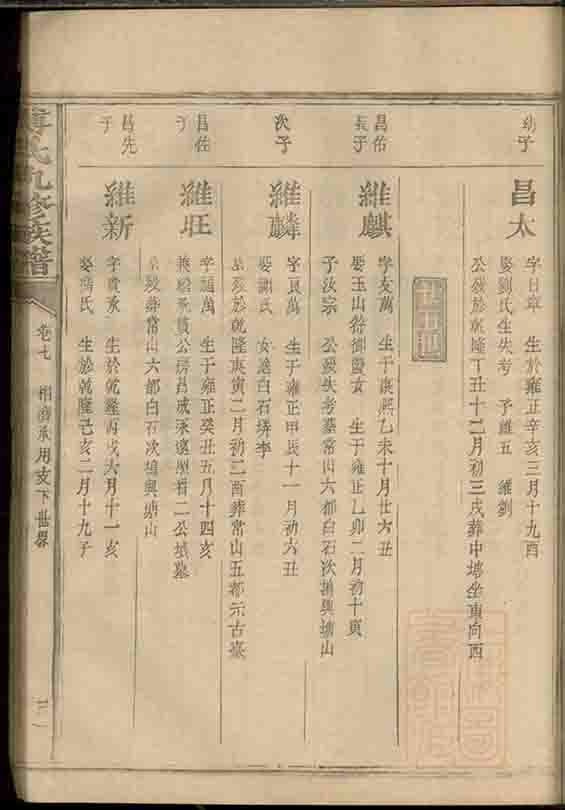 幼子
昌太
字日章 生於雍正辛亥三月十九酉
娶劉氏生失考 子維五 維釗
公歿於乾隆丁丑十二月初三戌葬中塆坐東向西
廿五世
昌佑
長子
維麒
字友萬 生于康熙乙未十月廿六丑
娶玉山徐御靈女 生于雍正乙卯二月初十寅
子汝宗 公歿失考墓常山六都白石次塘與塘山
次子
維麟
字良萬 生于雍正甲辰十一月初六丑
娶謝氏 女適白石塘李
公歿於乾隆庚寅二月初二酉葬常山五都元古臺
昌佐
子
維旺
字通萬 生于雍正癸丑五月十四亥
公歿葬常山六都白石次塘與塘山
昌先
子
維新
字貴承 生於乾隆丙戌六月十一亥
娶 氏 生於乾隆己亥二月十九子
氏九修族譜
卷七
相濟承用支下世系